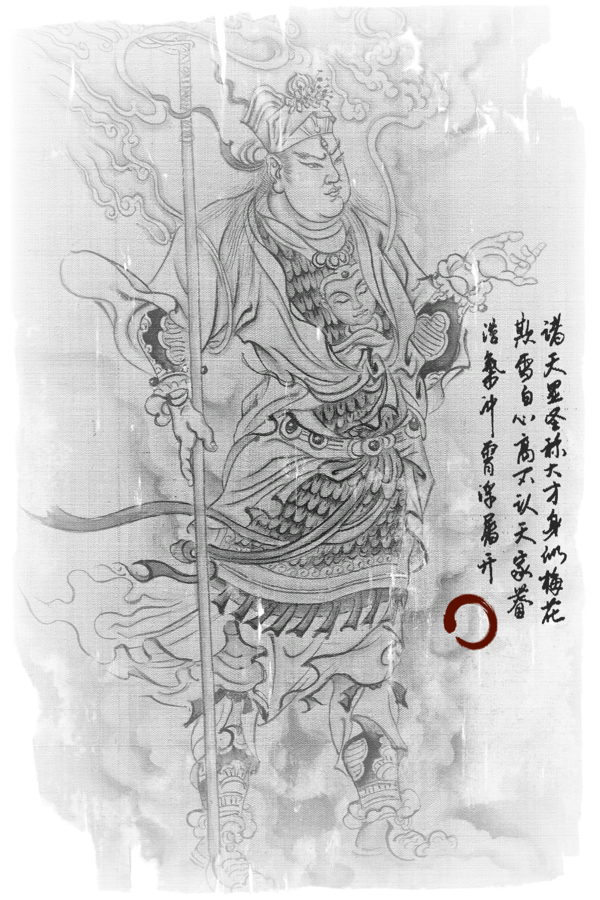 诸天显圣称大才身似梅花
欺雪白心高不认天家眷
浩气冲霄浮屠开